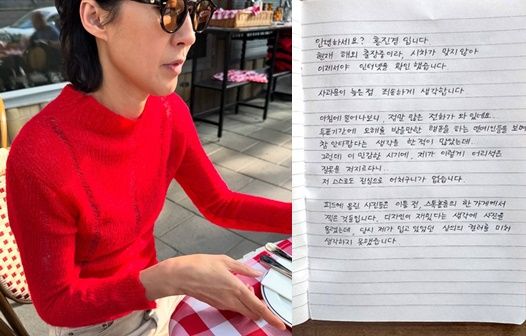 안녕하세요? 홍진경 입니다
현재 해외 출장중이라, 시차가 맞지않아
이제서야 인터넷을 확인 했습니다.
사과문이 늦은점 죄송하게 생각합니다.
아침에 일어나보니, 정말 많은 전화가 와 있네요..
투표기간에 오해를 받을만한 행동을 하는 연예인들을 보며
참 안타깝다는 생각을 한 적이 많았는데..
그런데 이 민감한 시기에, 제가 이렇게 어리석은
잘못을 저지르다니..
저 스스로도 진심으로 어처구니가 없습니다.
피드에 올린 사진들은 이틀 전, 스톡홀름의 한 가게에서
찍은 것들입니다. 디자인이 재밌다는 생각에 사진을
올렸는데, 당시 제가 입고 있었던 상의의 컬러를 미처
생각하지 못했습니다.